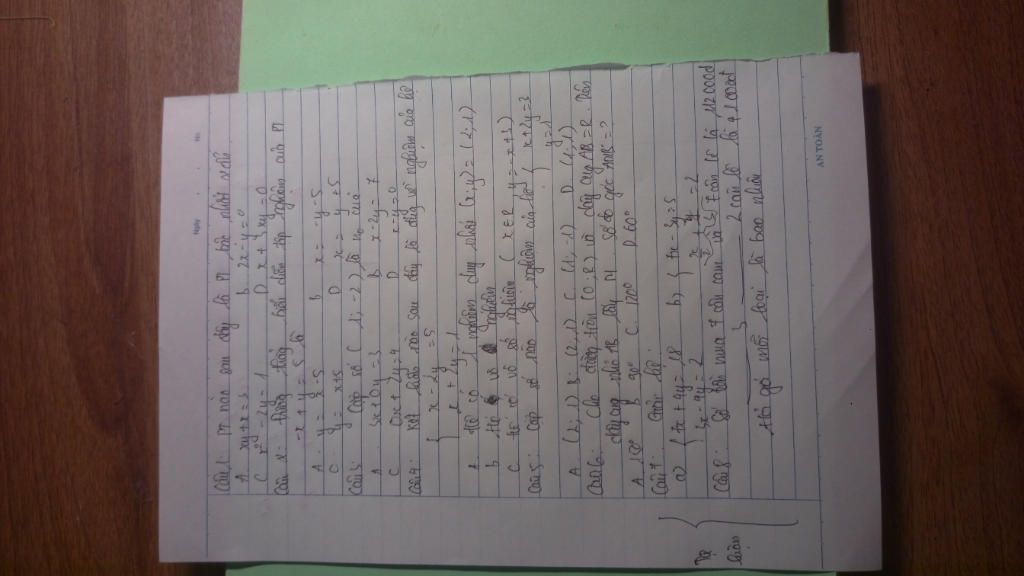 Ngày No.
Câu 1: PT nào sau đây là PT bậc nhất 2 ẩn
A xy + x = 3 b. 2x - y = 0
C x² - 2y = 1 D x + y + xy = 0
Câu 2: Đường thẳng biểu diễn tập nghiệm của PT
-x + y = 5 là
A. y = x - 5 b x = -y - 5
C y = x + 5 D x = y + 5
Câu 3: Cặp số (1; -2) là no của
A 3x + 0y = 3 b x - 2y = 7
C 0x + 2y = 4 D x - y = 0
Câu 4: kết luận nào sau đây là đúng về nghiệm của hệ
{ x - 2y = 5
-x + 2y = 1
A. Hệ có 1 nghiệm duy nhất (x; y) = (2; 1)
b Hệ vô nghiệm
C hệ có vô số nghiệm (x ∈ R y = -x + 3)
Câu 5: Cặp số nào là nghiệm của hệ { x + 2y = 3
y = 1
A (2; 1) B: (2, 1) C (1; -1) D (1; 1)
Câu 6: cho đường tròn (O; R) và dây cung AB = R. Trên
cung nhỏ AB lấy M. số đo góc AMB = ?
b 90° C. 120° D 60°
Câu 7: Giải hệ
a) { 7x + 4y = 18
3x - 4y = 2
b, { 7x - 3y = 5
= 2
Câu 8: 7 cân cam và 7 cân lê là 112 000đ
3 2 cân lê là 41 000đ
Hỏi giá mỗi loại là bao nhiêu
Tự
luận
AN TOÀN